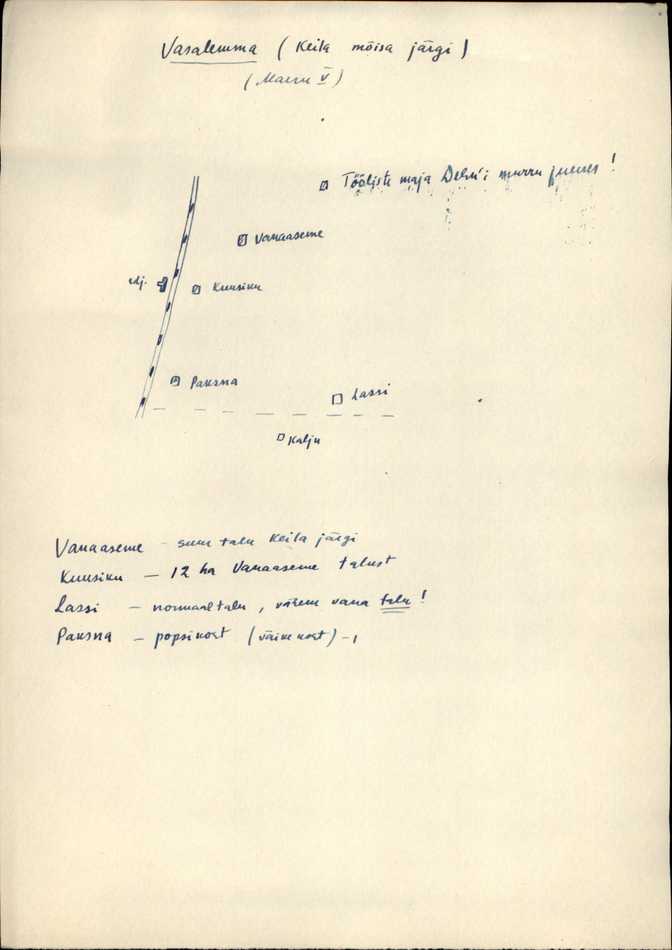 Vasalemma (Keila mõisa järgi)
(Maeru V)
Tööliste maja Dehn'i murru juures!
Vanaaseme
rdj.
Kuusiku
Paksna
Lassi
Kalju
Vanaaseme - suur talu Keila järgi
Kuusiku - 12 ha Vanaaseme talust
Lassi - normaaltalu, värem vana talu!
Paksna - popsikoht (väikekoht) -,